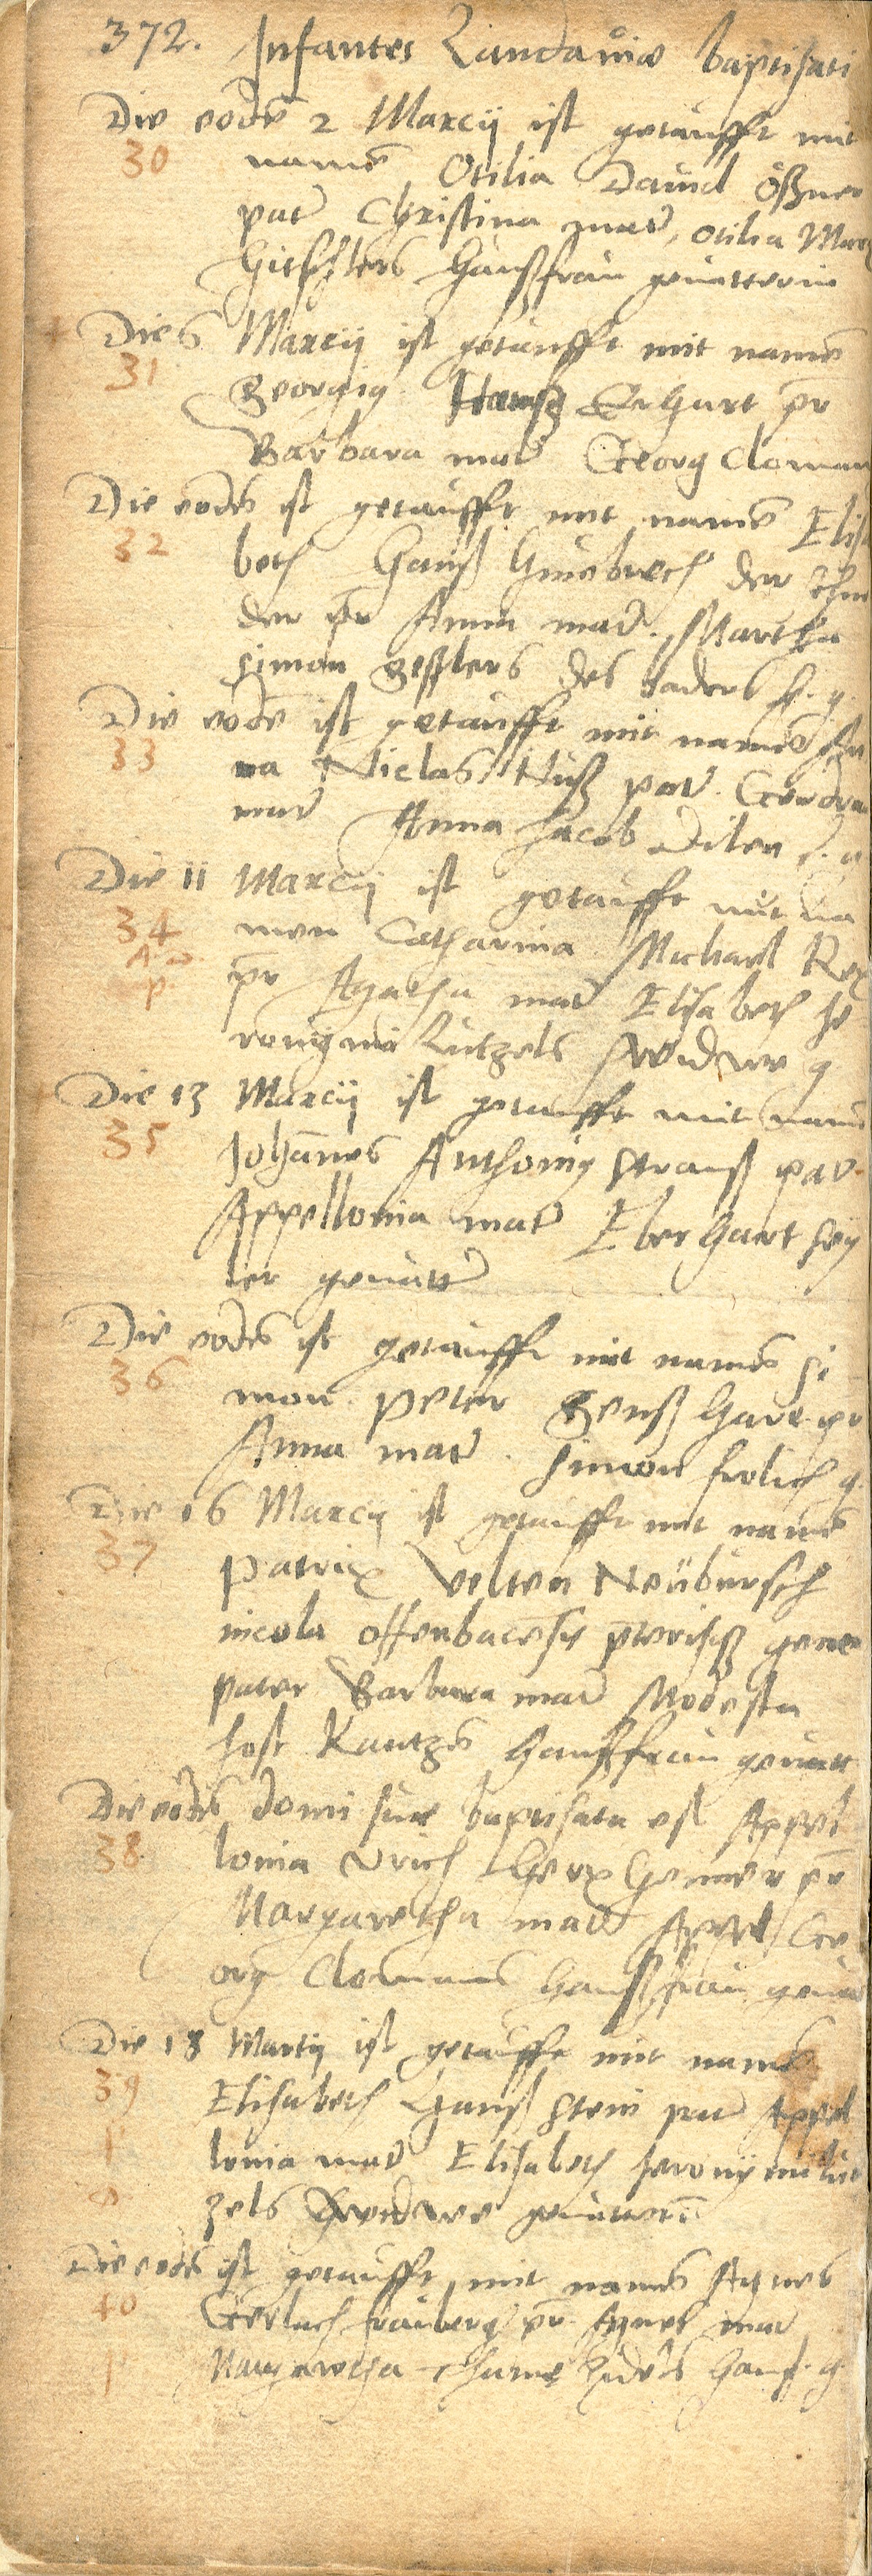 372. Infantes Landaviæ baptisati
Die eodē 2 Marcij ist getaufft mit
30 namē Otilia David Ößner
pat Christina mat, Otilia Marx
hitschlers haußfrau gevatterin
Die 6 Marcij ist getaufft mit namē
31 Georgig Hanß Erhart pr
Barbara mat Georg Cloman
Die eodē ist getaufft mit namē Elisa
32 beth Hanß
der pr Anna mat. Martha
Simon Geßlers des baders h. g.
Die eodē ist getaufft mit namē An
33 na Niclas Nuß pat. Gerdra
mat Anna Jacob Dilen h. g
Die 11 Marcij ist getaufft mit na
34 men Catharina Michael Rex
pr Agatha mat Elisabeth Je
p ronijmi Lutzels widwe g
Die 13 Marcij ist getaufft mit namē
35 Johānes Anthonig Strauß pat.
Appellonia mat Eberhart Sey
ler gevatt
Die eodē ist getaufft mit namē Si
36 mon Peter Genß hart pr
Anna mat. Simon frolich g.
Die 16 Marcij ist getaufft mit namē
37 Patrix Velten Neübursch
nicola offenbacēsis gene
pater Barbara mat Modesta
Jost Kautzē haußfrau gevatt
Die eodē domi suæ baptisata est Appel
38 lonia Vrich pr
Margaretha mat Appel Ge
org Clomans haußfrau geva
Die 18 Martij ist getaufft mit namē
39 Elisabeth Hanß Stein pat Appel
lonia mat Elisabeth Jeronijmi lüt
zels widwe gevatterī
Die eodē ist getaufft mit namē Agnes
40 Gerlach frauberg pr. Agnes mat
Margaretha hauß. g.